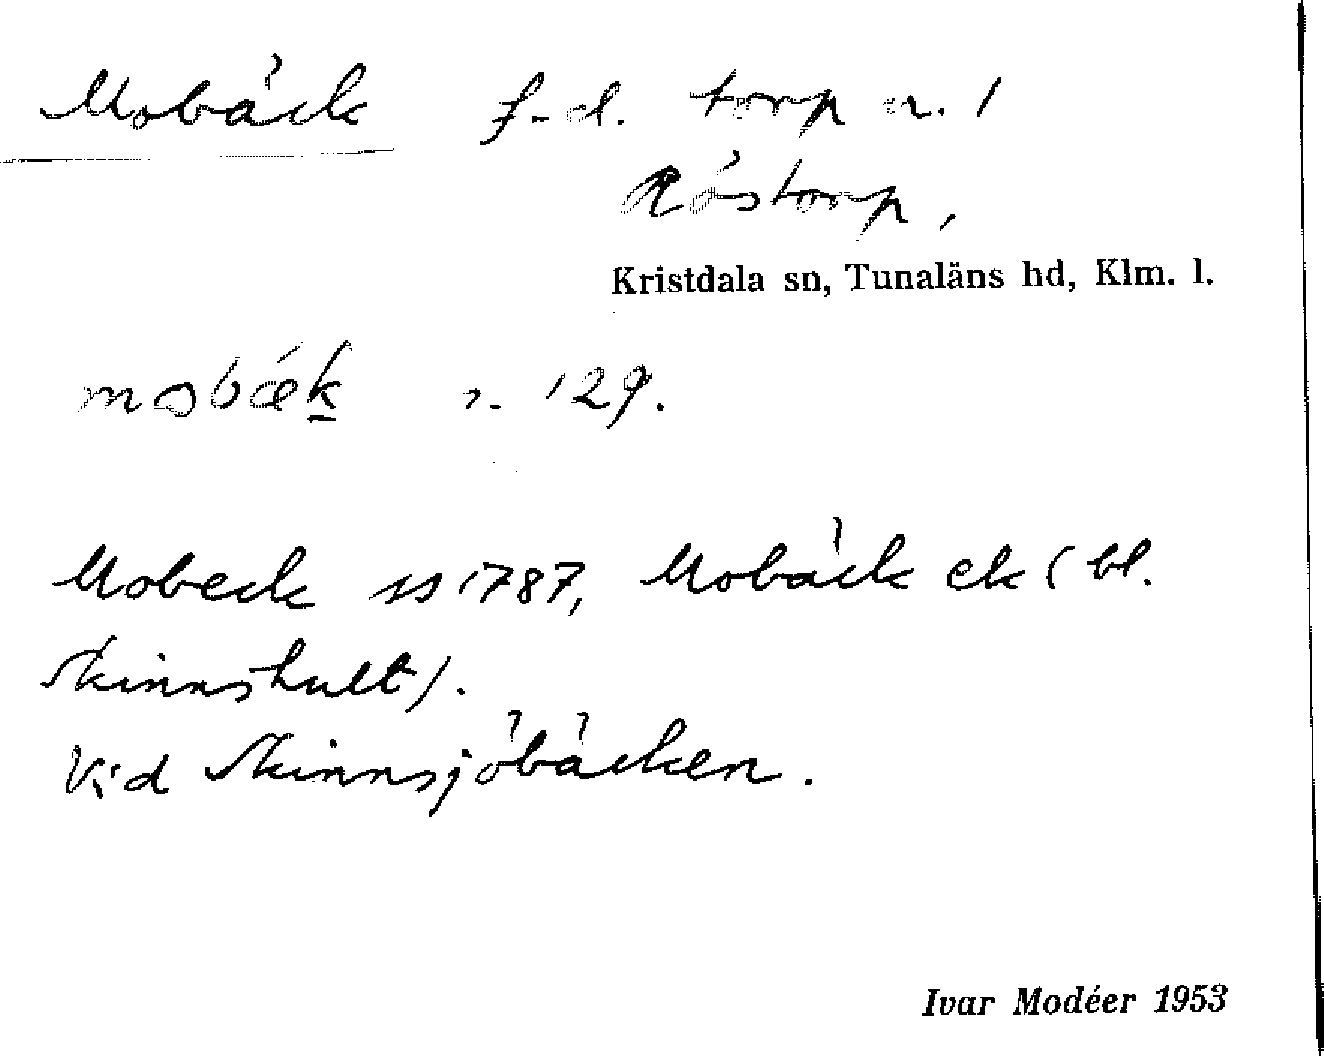 Mobäck f.d. torp u. /
Röstorp,
Kristdala sn, Tunaläns hd, Klm. l.
mobæk s. 129.
Mobeck ss 1787, Mobäck ek ( bl.
Skinnshult).
Vid Skinnsjöbäcken.
Ivar Modéer 1953